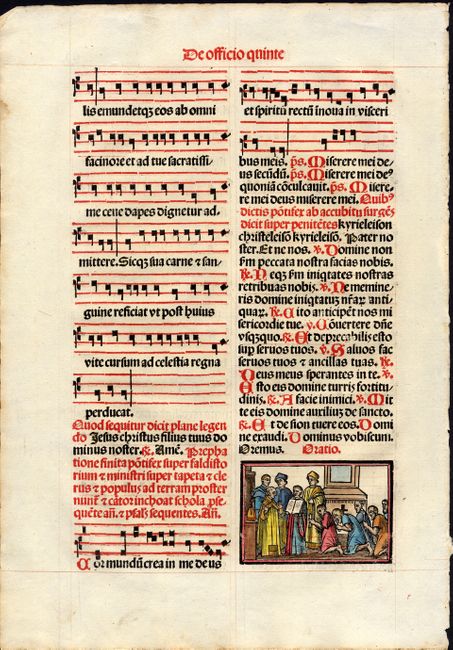 De officio quinte
lis emundetqꝫ eos ab omni
facinore et ad tue sacratissi
me cene dapes dignetur ad,
mittere. Sicqꝫ sua carne & san-
guine reficiat vt post huius
vite cursum ad celestia regna
perducat.
Quod sequitur dicit plane legen
do Jesus christus filius tuus do
minus noster. ℟. Amē. Prepha
tione finita pōtifex super faldisto
rium & ministri super tapeta & cle
rus & populus ad terram proster
nunt̄ & cātor inchoat schola pse
quēte añ. & psal̄s sequentes. Añ.
Cor mundū crea in me deus
et spiritū rectū innoua in visceri
bus meis. p̄s. Miserere mei de-
us secūdū. p̄s. Miserere mei deꝰ
quoniā cōculcauit. p̄s. Misere-
re mei deus miserere mei. Quibꝰ
dictis pōtifex ab accubitu surgēs
dicit super penitētes kyrieleison
christeleisō kyrieleisō. Pater no
ster. Et ne nos. ℣. Domine non
fm̄ peccata nostra facias nobis.
℟. Neqꝫ fm̄ iniqtates nostras
retribuas nobis. ℣. Ne memine-
ris domine iniqtatuꝫ nr̄arꝝ anti-
quarꝝ. ℟. Cito anticipēt nos mi
sericordie tue. ℣. Cōuertere dn̄e
vsqꝫquo. ℟. Et deprecabilis esto
sup seruos tuos. ℣. Saluos fac
seruos tuos & ancillas tuas. ℟.
Deus meus sperantes in te. ℣.
Esto eis domine turris fortitu-
dinis. ℟. A facie inimici. ℣. Mit
te eis domine auxiliuꝫ de sancto.
℟. Et de sion tuere eos. Domi
ne exaudi. Dominus vobiscum.
Oremus. Oratio.